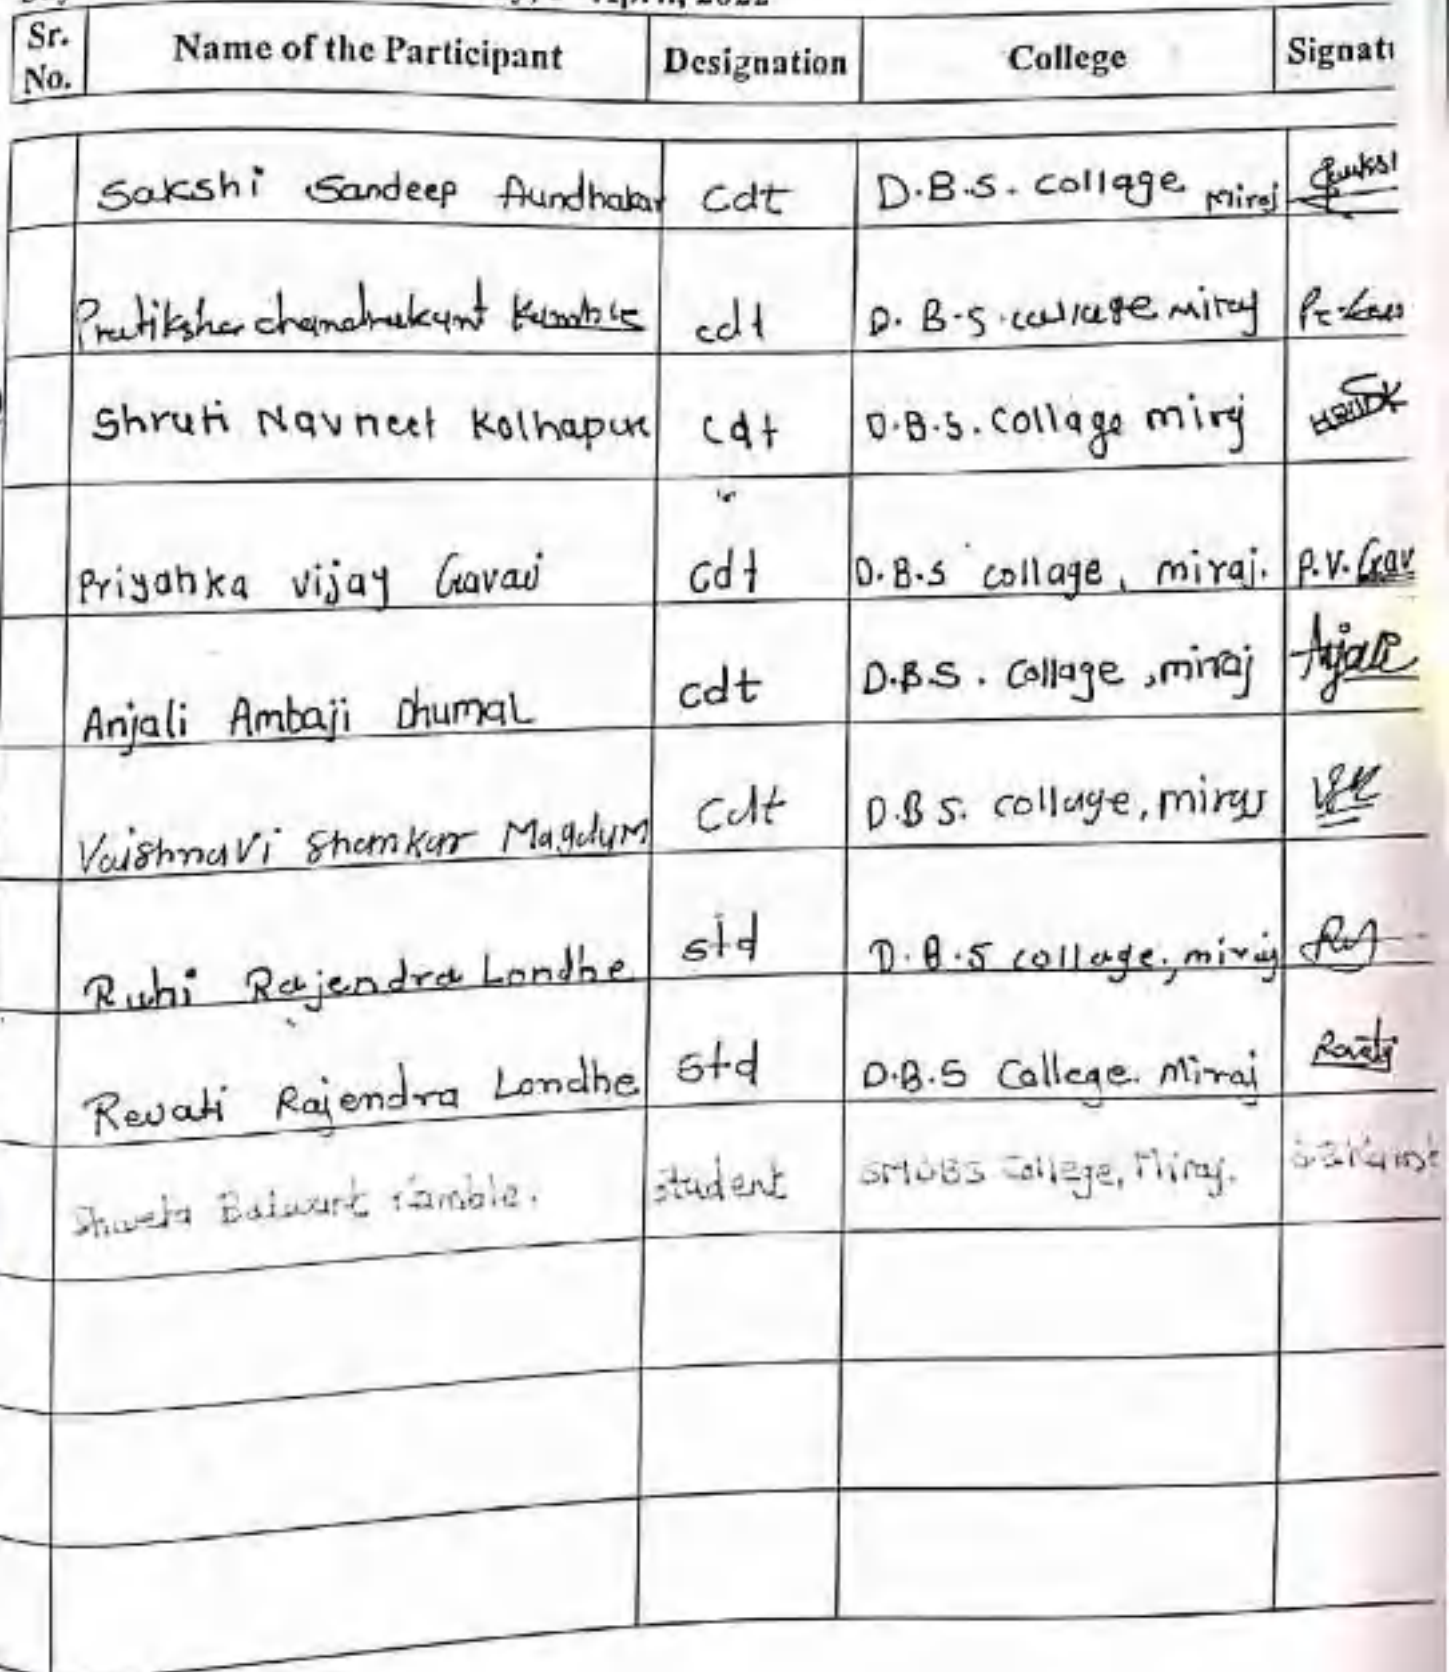 April, 2022
Sr. No. Name of the Participant Designation College Signatu
Sakshi Sandeep Aundhakar Cdt D.B.S. collage Miraj
Pratiksha chandrakant Kamble cdt D.B.S. collage miraj
Shruti Navneet Kolhapure cdt D.B.S. Collage miraj
Priyanka vijay Gavai cdt D.B.S collage, miraj. P.V.Gav
Anjali Ambaji Dhumal cdt D.B.S. Collage, miraj Anjali
Vaishnavi Shamkar Magdum Cdt D.B.S. collage, miraj
Ruhi Rajendra Londhe std D.B.S collage, miraj
Revati Rajendra Londhe std D.B.S College. Miraj Revati
Shweta Balwant Kamble. student SMDBS College, Miraj.